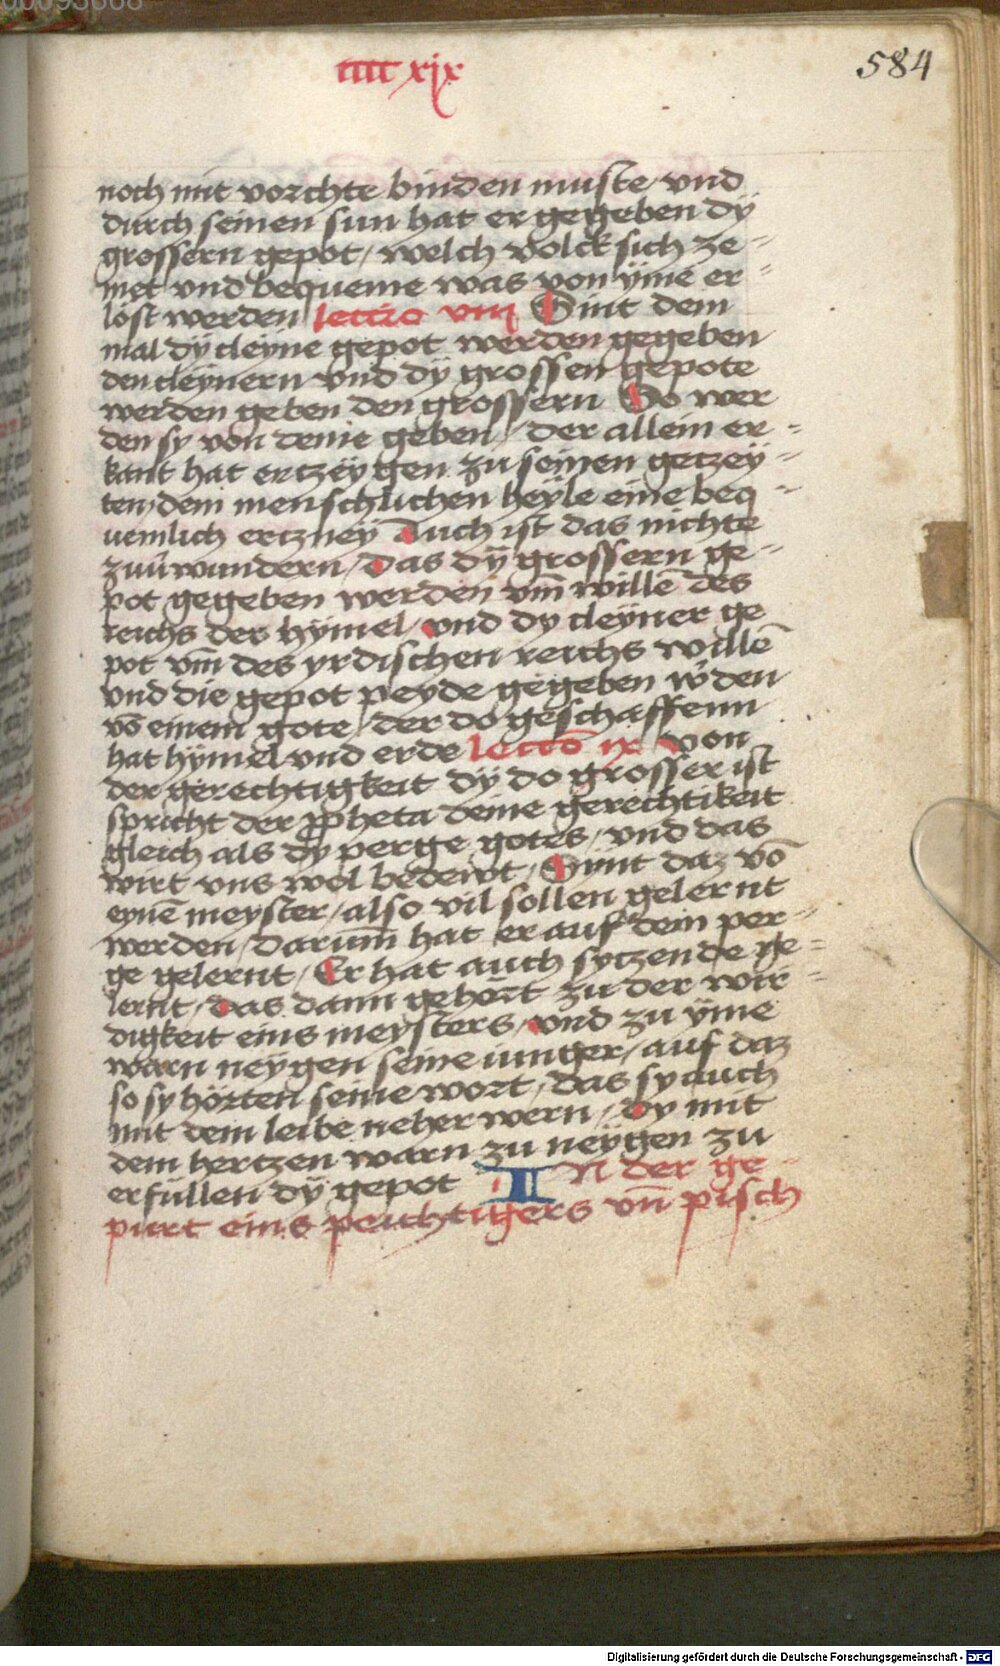 cccc xix
584
noch mit vorchte binden muste / vnd
durch seinen sun hat er gegeben dÿ
grossern gepot / welch volck sich ze-
met vnd bequeme was von ÿme er-
lost werden lectio viij Sint dem
mal dÿ cleyne gepot werden gegeben
den cleÿnern vnd dÿ grossen gepote
werden geben den grossern So wer
den sy von deme geben / der allein er-
kant hat ertzeÿgen zu seinen getzeÿ-
ten / dem menschlichen heÿle eine beq-
uemlich ertzneÿ Auch ist das nichte
zuuͦwundern / Das dÿ grossern ge-
pot gegeben werden vm̄ wille des
reichs der hÿmel / vnd dy cleÿner ge
pot vm̄ des yrdischen reichs willē
vnd die gepot peyde gegeben w'den
vō einem gote / der do geschaffenn
hat hÿmel vnd erde lectō ix von
der gerechtigkeit dÿ do grosser ist
spricht der ꝓpheta deine gerechtikeit
gleich als dy perge gotes / vnd das
wirt vns wol bedewt / Synt daz vō
eynē meyster / also vil sollen gelernt
werden / darum̄ hat er auf dem per-
ge gelernt / Er hat auch sytzende ge-
lernt / das dann gehort zu der wir-
digkeit eins meysters / vnd zu ÿme
warn neygen seine iunger / auf daz
so sy hörten seine wort / das sy auch
mit dem leibe neher wern / dy mit
dem hertzen warn zu neÿgen zu
erfüllen dÿ gepot IN der ge-
purt eins peichtigers vn̄ pisch
Digitalisierung gefördert durch die Deutsche Forschungsgemeinschaft - DFG